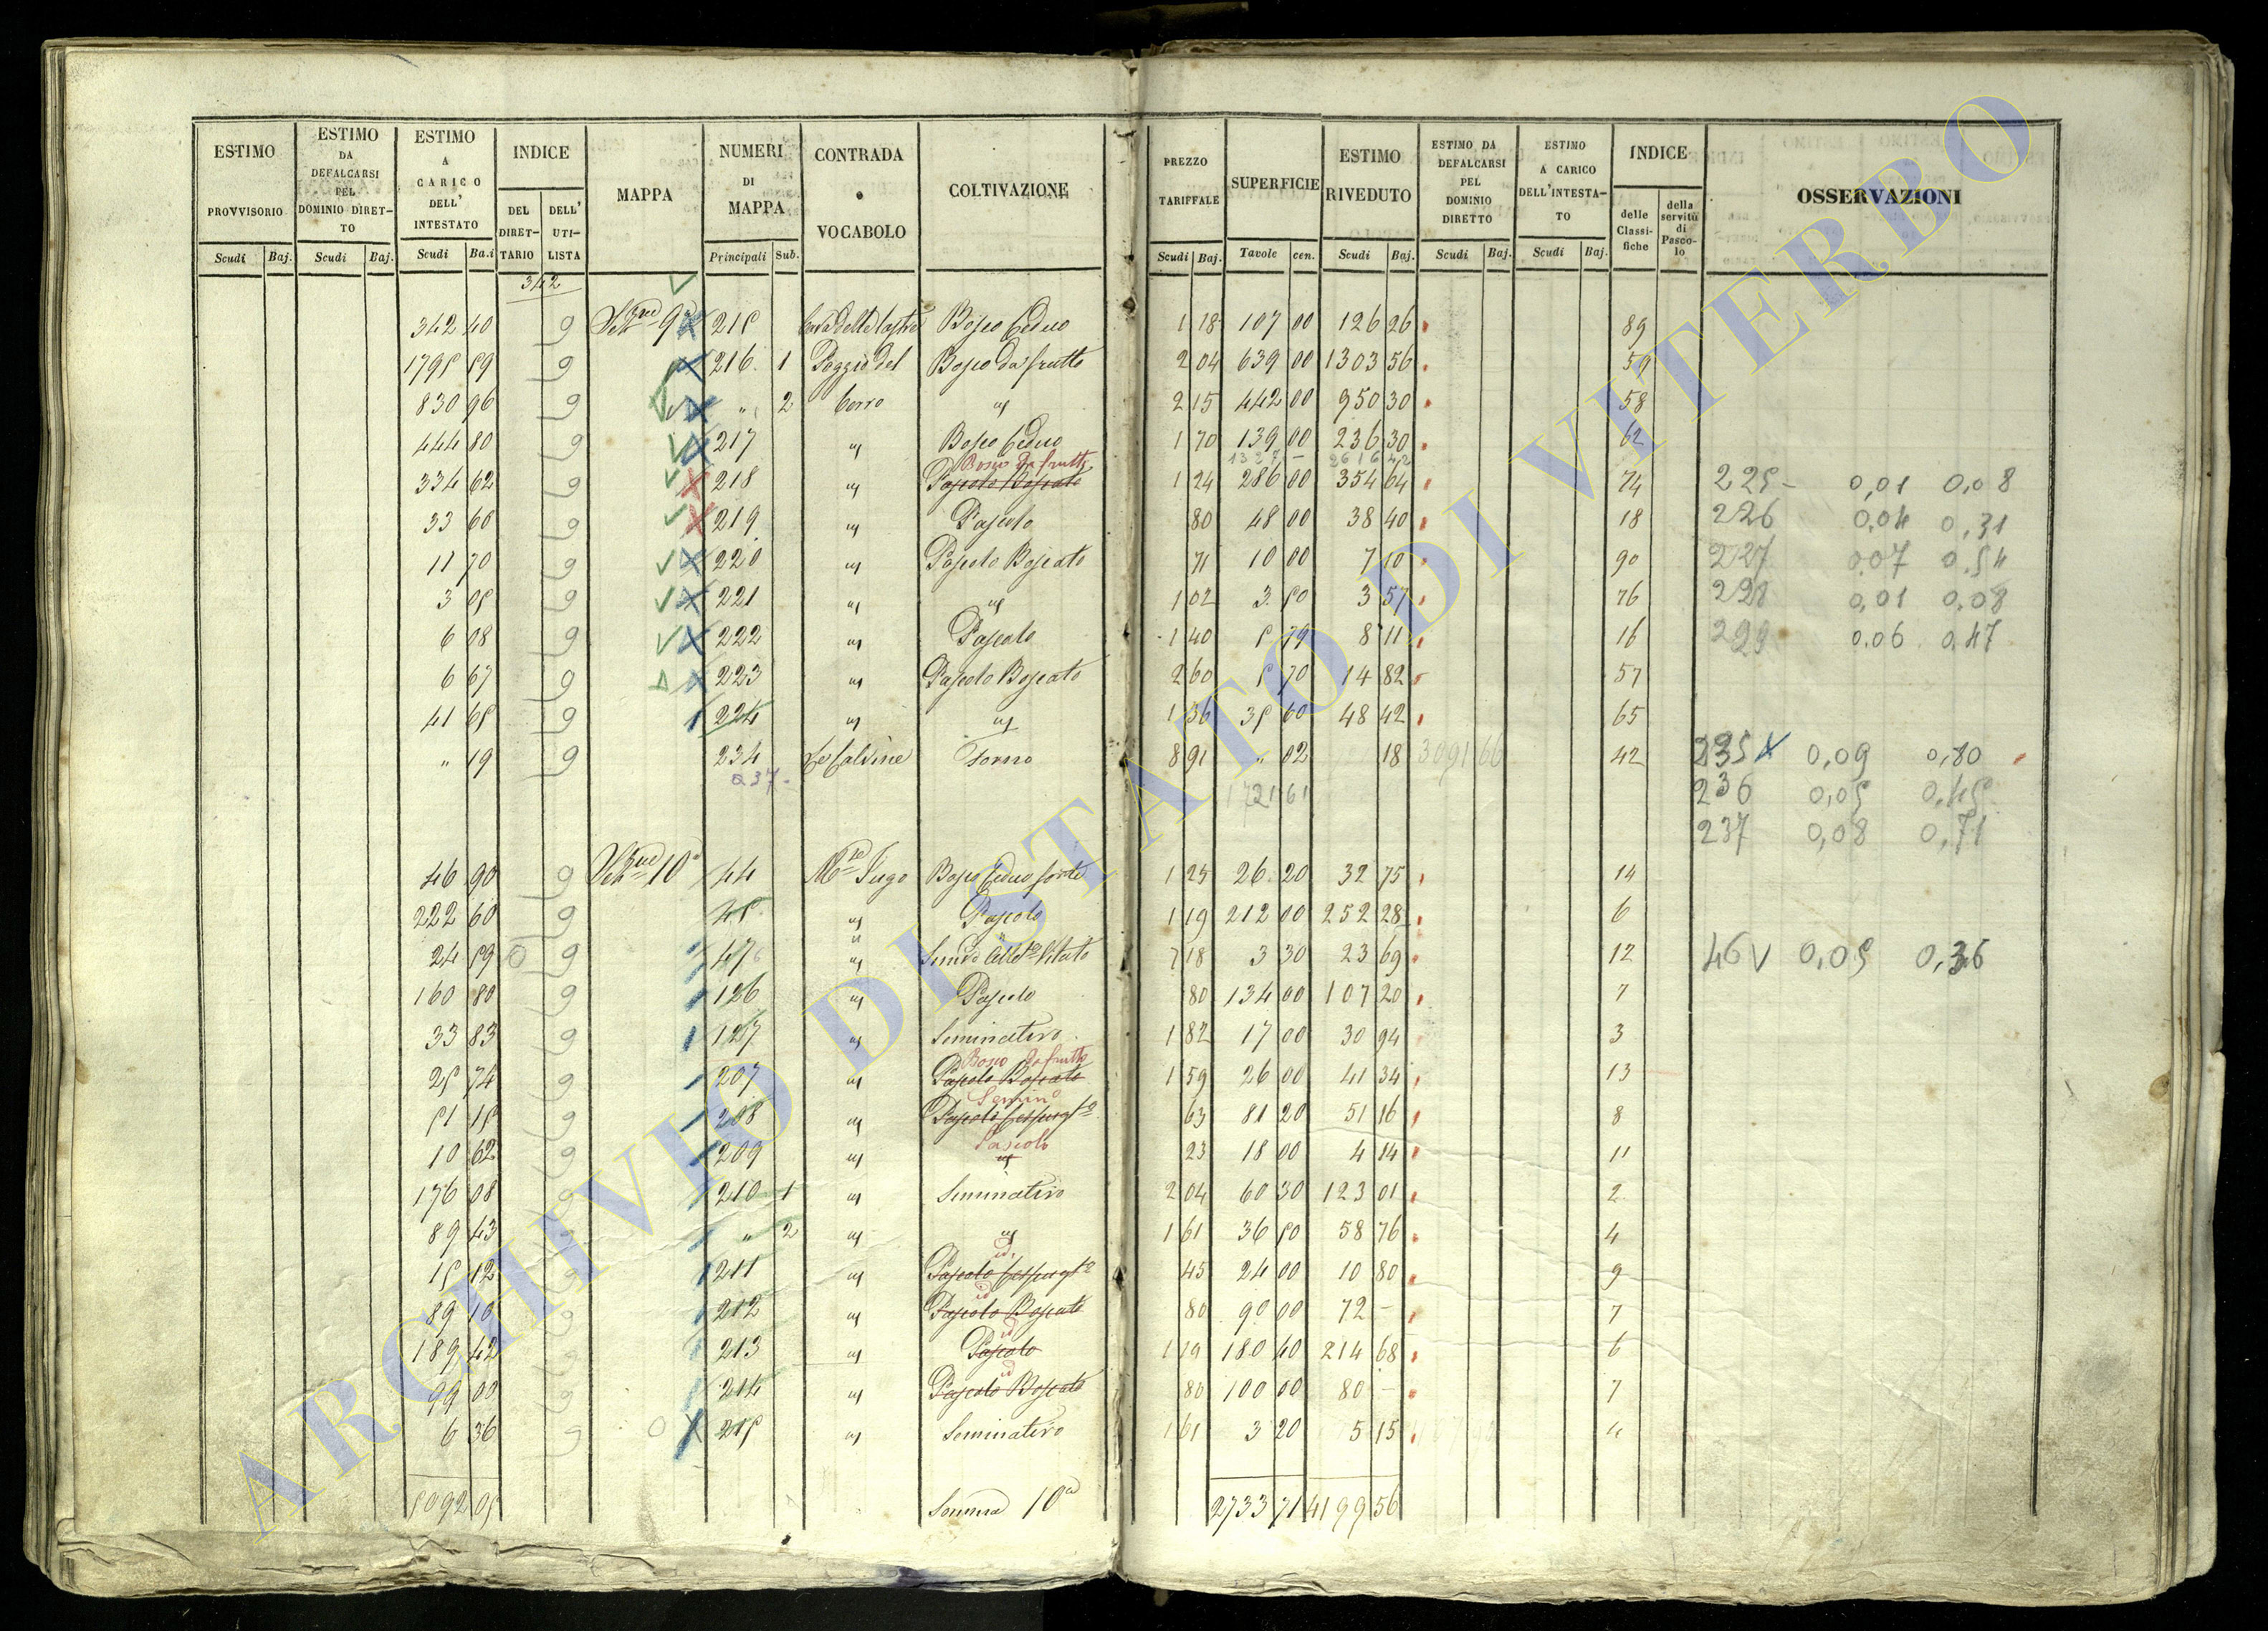 ESTIMO PROVVISORIO Scudi Baj.
ESTIMO DA DEFALCARSI PEL DOMINIO DIRETTO Scudi Baj.
ESTIMO A CARICO DELL' INTESTATO Scudi Ba.i
INDICE DEL DIRETTARIO DELL' UTILISTA
MAPPA
NUMERI DI MAPPA Principali Sub.
CONTRADA o VOCABOLO
COLTIVAZIONE
PREZZO TARIFFALE Scudi Baj.
SUPERFICIE Tavole cen.
ESTIMO RIVEDUTO Scudi Baj.
ESTIMO DA DEFALCARSI PEL DOMINIO DIRETTO Scudi Baj.
ESTIMO A CARICO DELL'INTESTATO Scudi Baj.
INDICE delle Classifiche della servitù di Pascolo
OSSERVAZIONI
342
342 40 9 9a 215 Bosco Ceduo 1 18 107 00 126 26 89
1795 59 9 216 1 Poggio del Bosco da frutto 2 04 639 00 1303 56 59
830 96 9 " 2 Cerro " 2 15 442 00 950 30 58
444 80 9 217 " Bosco Ceduo 1 70 139 00 236 30 62
Bosco da frutto 1327 – 2616 42
334 62 9 218 " Pascolo Boscato 1 24 286 00 354 64 74 225 – 0,01 0,08
33 60 9 219 " Pascolo 80 48 00 38 40 18 226 0,04 0,31
11 70 9 220 " Pascolo Boscato 71 10 00 7 10 90 227 0,07 0,54
3 05 9 221 " " 1 02 3 50 3 57 76 228 0,01 0,08
6 08 9 222 " Pascolo 1 40 5 79 8 11 16 229 0,06 0,47
6 67 9 223 " Pascolo Boscato 2 60 5 70 14 82 57
41 65 9 224 " " 1 36 35 60 48 42 65
" 19 9 234 Le Caldine Forno 8 91 " 02 18 3091 66 42 235 0,09 0,80
237 – 1721 61 236 0,05 0,45
237 0,08 0,71
46 90 9 10a 44 Mte Jugo Bosco Ceduo forte 1 25 26 20 32 75 14
222 60 9 45 " Pascolo 1 19 212 00 252 28 6
24 59 9 47 " Vitato 7 18 3 30 23 69 12 46 V 0,05 0,36
160 80 9 126 " Pascolo 80 134 00 107 20 7
33 83 9 127 " Seminativo 1 82 17 00 30 94 3
Bosco da frutto
25 74 9 207 " Pascolo Boscato 1 59 26 00 41 34 13
Semino
51 15 9 208 " Pascolo Cespugto 63 81 20 51 16 8
Pascolo
10 62 9 209 " " 23 18 00 4 14 11
176 08 9 210 1 " Seminativo 2 04 60 30 123 01 2
89 43 9 " 2 " " 1 61 36 50 58 76 4
id.
15 12 9 211 " Pascolo Cespugto 45 24 00 10 80 9
id
89 10 9 212 " Pascolo Boscato 80 90 00 72 – 7
id
189 42 9 213 " Pascolo 1 19 180 40 214 68 6
id
99 00 9 214 " Pascolo Boscato 80 100 00 80 – 7
6 36 9 215 " Seminativo 1 61 3 20 5 15 4
5092 05 Somma 10a 2733 71 4199 56
ARCHIVIO DI STATO DI VITERBO